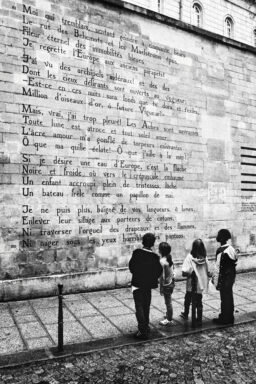 Moi qui tremblais, sentant geindre à cinquante lieues
Le rut des Béhémots et les Maelstroms épais,
Fileur éternel des immobilités bleues,
Je regrette l'Europe aux anciens parapets !
J'ai vu des archipels sidéraux ! et des îles
Dont les cieux délirants sont ouverts au vogueur :
- Est-ce en ces nuits sans fonds que tu dors et t'exiles,
Million d'oiseaux d'or, ô future Vigueur ?
Mais, vrai, j'ai trop pleuré ! Les Aubes sont navrantes.
Toute lune est atroce et tout soleil amer :
L'âcre amour m'a gonflé de torpeurs enivrantes.
Ô que ma quille éclate ! Ô que j'aille à la mer !
Si je désire une eau d'Europe, c'est la flache
Noire et froide où vers le crépuscule embaumé
Un enfant accroupi plein de tristesses, lâche
Un bateau frêle comme un papillon de mai.
Je ne puis plus, baigné de vos langueurs, ô lames,
Enlever leur sillage aux porteurs de cotons,
Ni traverser l'orgueil des drapeaux et des flammes,
Ni nager sous les yeux horribles des pontons.